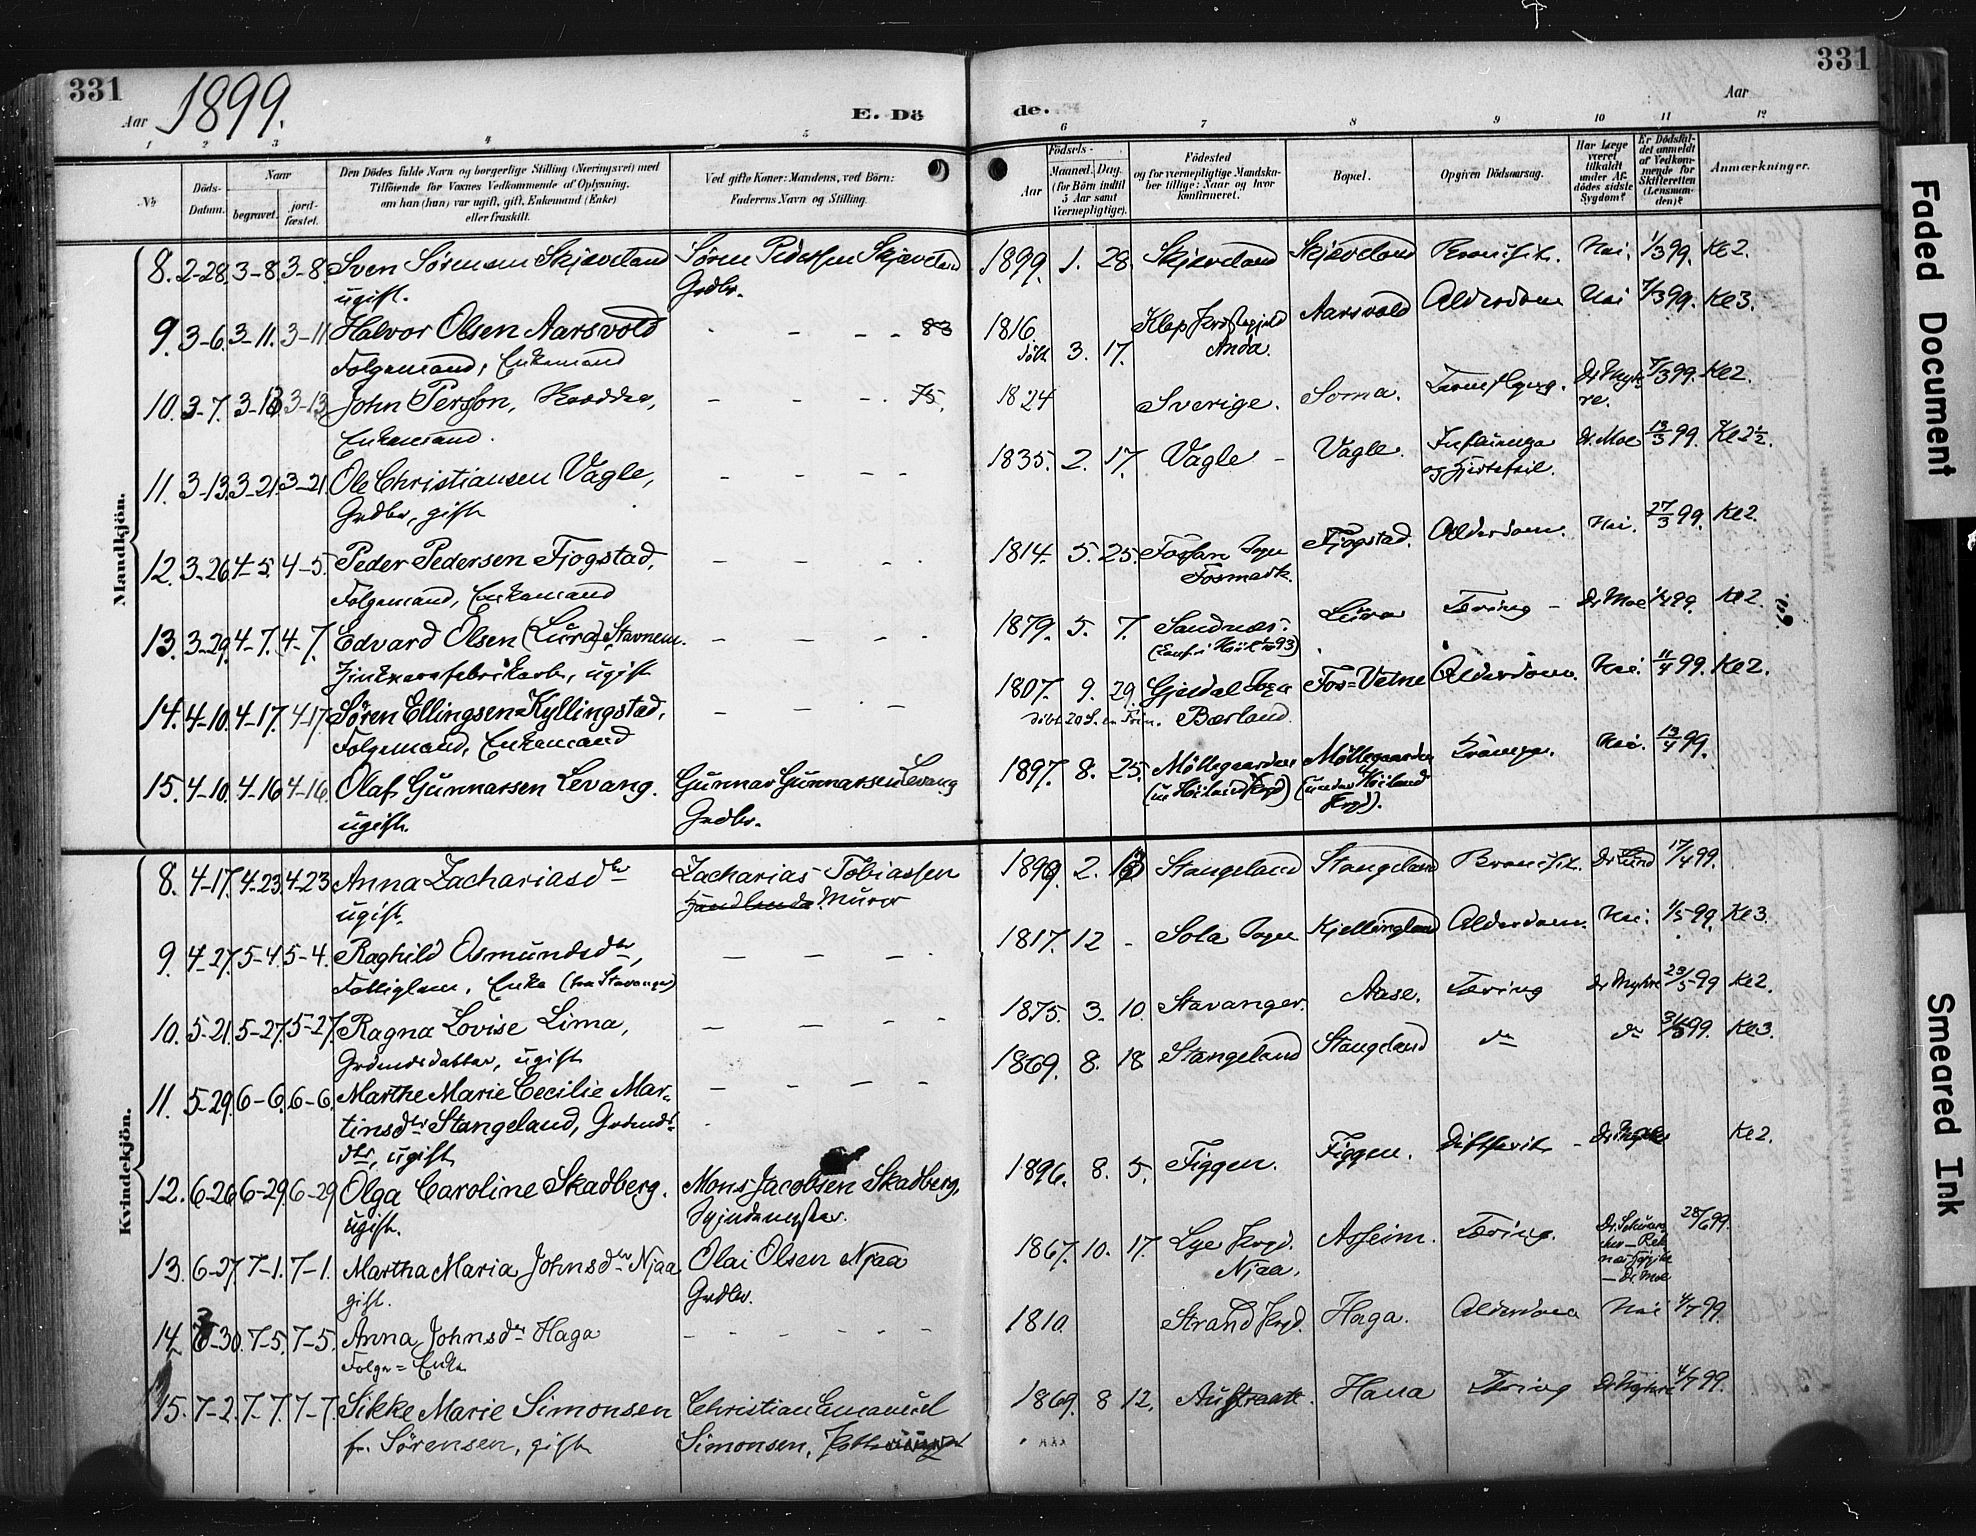 331
Aar 1899.
E. Dö
de.
331
Aar
1 2 3 4 5 6 7 8 9 10 11 12
No
Döds-Datum.
Naar
begravet.
jord-fæstet.
Den Dödes fulde Navn og borgerlige Stilling (Næringsvei) med
Tilföiende for Voxnes Vedkommende af Oplysning,
om han (hun) var ugift, gift, Enkemand (Enke)
eller fraskilt.
Ved gifte Koner: Mandens, ved Börn:
Faderens Navn og Stilling.
Födsels-
Aar
Maaned. Dag.
(for Börn indtil
5 Aar samt
Værnepligtige).
Födested
og for værnepligtige Mandska-
ber tillige: Naar og hvor
konfirmeret.
Bopæl.
Opgiven Dödsaarsag.
Har Læge
været
tilkaldt
under Af-
dödes sidste
Sygdom?
Er Dödsfal-
det anmeldt
af Vedkom-
mende for
Skifteretten
(Lensman-
den)?
Anmærkninger.
Mandkjön.
8. 2-28. 3-8. 3-8. Sven Sörensen Skjæveland Sören Pedersen Skjæveland 1899. 1. 28. Skjæveland Skjæveland Bronchit. Nei. 1/3 99. Kl 2.
ugift. Grdbr.
9. 3-6. 3-11. 3-11 Halvor Olsen Aarsvold - - - 83 1816 Klep Prestegjeld Aarsvold Alderdom Nei 7/3 99. Kl 3.
Folgemand, Enkemand döbt 3. 17. Anda.
10. 3-7. 3-13 3-13 John Person, - - - 75. 1824 Sverige. Soma. Dr Myh- 7/3 99. Kl 2.
Enkemand. re.
11. 3-13. 3-21. 3-21. Ole Christiansen Vagle, - - - - 1835. 2. 17. Vagle - Vagle. Influenza Dr. Moe 13/3 99. Kl 2½.
Grdbr, gift og Hjertefeil.
12. 3-26. 4-5. 4-5. Peder Pedersen Fjogstad, - - - - 1814. 5. 25. Fossan Sogn Fjogstad. Alderdom. Nei. 27/3 99. Kl 2.
Folgemand, Enkemand Fosmark.
13. 3-29. 4-7. 4-7. Edvard Olsen (Lura) Stavnem. - - - - 1879. 5. 7. Sandnæs. Lura Tæring - Dr Moe 1/4 99. Kl 2.
ugift
14. 4-10. 4-17. 4-17. Sören Ellingsen Kyllingstad, - - - - 1807. 9. 29. Gjesdal Sogn Fos=Vatne Alderdom. Nei. 11/4 99. Kl 2.
Folgemand, Enkemand Bærland.
15. 4-10. 4-16 4-16. Olaf Gunnarsen Levang. Gunnar Gunnarsen Levang 1897. 8. 25. Möllegaarden Möllegaarden Krampe. Nei. 13/4 99.
ugift. Grdbr. (u. Höiland Prgd) (under Höiland
Prgd).
Kvindekjön.
8. 4-17. 4-23 4-23 Anna Zachariasdtr Zacharias Tobiassen 1899. 2. 13 Stangeland Stangeland Bronchit. Dr Lund 17/4 99.
ugift. Murer
9. 4-27. 5-4. 5-4. Raghild Osmundsdtr, - - - - 1817. 12 - Sola Sogn Kjellingland Alderdom. Nei. 1/5 99. Kl 3.
Fattiglem, Enke (fra Stavanger)
10. 5-21. 5-27. 5-27. Ragna Lovise Lima, - - - - 1875. 3. 10. Stavanger. Aase. Tæring Dr Myhre 23/5-99 Kl 2.
Grdmdsdatter, ugift
11. 5-29. 6-6. 6-6. Marthe Marie Cecilie Mar- - - - - 1869. 8. 18 Stangeland Stangeland do do 31/5 99. Kl 3.
tinsdtr Stangeland, Grdmds-
dtr, ugift
12. 6-26. 6-29. 6-29 Olga Caroline Skadberg. Mons Jacobsen Skadberg, 1896. 8. 5. Figgen. Figgen. Difftherit - Dr Myhre Kl 2.
ugift.
13. 6-27 7-1. 7-1. Martha Maria Johnsdtr Njaa Olai Olsen Njaa 1867. 10. 17. Lye Prgd. Asheim. Tæring. 28/6 99.
gift. Grdbr. Njaa. - Dr Moe
14 6-30. 7-5. 7-5. Anna Johnsdtr Haga - - - - - - 1810. Strand Prgd. Haga. Alderdom Nei 4/7 99.
Folge=Enke
15. 7-2. 7-7. 7-7. Sikke Marie Simonsen Christian Emanuel 1869. 8 12. Austraatt. Hana Tæring Dr Myhre 4/7 99.
f. Sörensen, gift Simonsen,
Faded Document
Smeared Ink